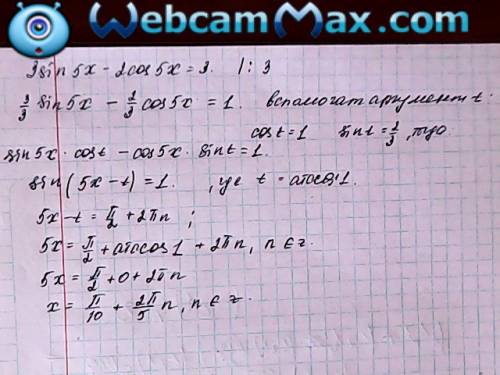 WebcamMax.com
3sin5x - 2cos5x = 3. | : 3
3/3 sin5x - 2/3 cos5x = 1. вспомогат аргумент t.
cost = 1 sint = 2/3, тогда
sin5x · cost - cos5x · sint = 1.
sin(5x - t) = 1. , где t = arccos1.
5x - t = π/2 + 2πn ;
5x = π/2 + arccos1 + 2πn, n ∈ z.
5x = π/2 + 0 + 2πn
x = π/10 + 2π/5 n, n ∈ z.